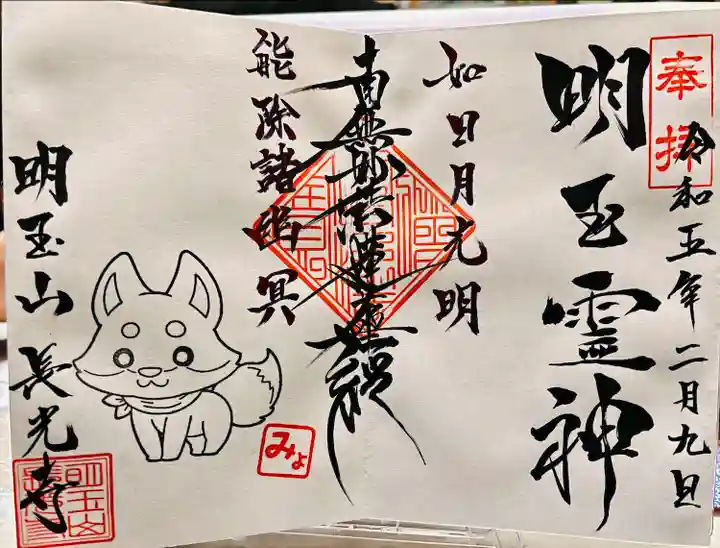 奉拝
令和五年二月九日
明玉霊神
如日月光明
南無妙法蓮華経
能除諸幽冥
みょ
明玉山 長光寺
明玉山